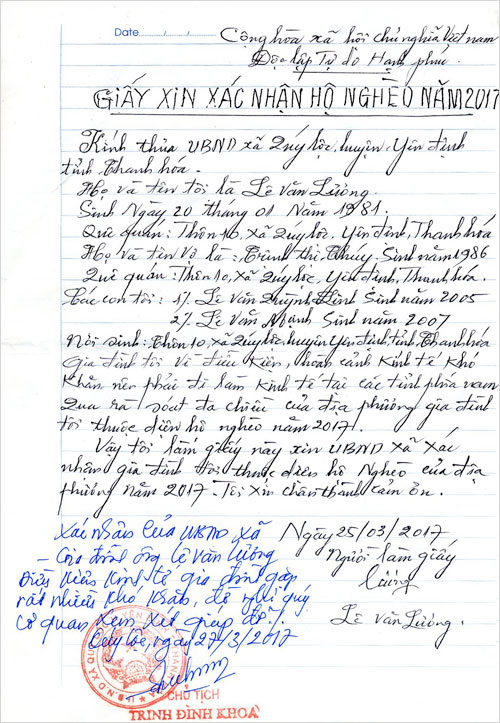 Date / /
Cộng hòa xã hội chủ nghĩa Việt nam
Độc lập Tự do Hạnh phúc
GIẤY XIN XÁC NHẬN HỘ NGHÈO NĂM 2017
Kính thưa UBND xã Quý lộc, huyện Yên định
tỉnh Thanh hóa.
Họ và tên tôi là Lê Văn Lương.
Sinh Ngày 20 tháng 01 Năm 1981.
Quê quán: Thôn 10, Xã Quý lộc, Yên định, Thanh hóa
Họ và tên Vợ là: Trịnh thị Thúy, Sinh năm 1986
Quê quán: Thôn 10, Xã Quý lộc, Yên định, Thanh hóa.
Các con tôi: 1/. Lê Văn Quỳnh Linh Sinh năm 2005
2/. Lê Văn Mạnh Sinh năm 2007
Nơi sinh: Thôn 10, xã Quý lộc, huyện Yên định, tỉnh Thanh hóa
Gia đình tôi Vì điều kiện, hoàn cảnh Kinh tế Khó
Khăn, nên phải đi làm Kinh tế tại các tỉnh phía nam
Qua rà soát đa chiều của địa phương gia đình
tôi thuộc diện hộ nghèo năm 2017.
Vậy tôi làm giấy này xin UBND xã Xác
nhận gia đình tôi thuộc diện hộ Nghèo của địa
phương năm 2017. Tôi Xin chân thành cảm ơn.
Ngày 25/03/2017
Người làm giấy
Lương
Lê Văn Lương.
Xác nhận của UBND xã
- Gia đình ông Lê Văn Lương
Điều kiện kinh tế gia đình gặp
rất nhiều khó khăn, đề nghị quý
cơ quan Xem Xét giúp đỡ./.
Quý lộc, ngày 27/3/2017
CHỦ TỊCH
TRỊNH ĐÌNH KHOA